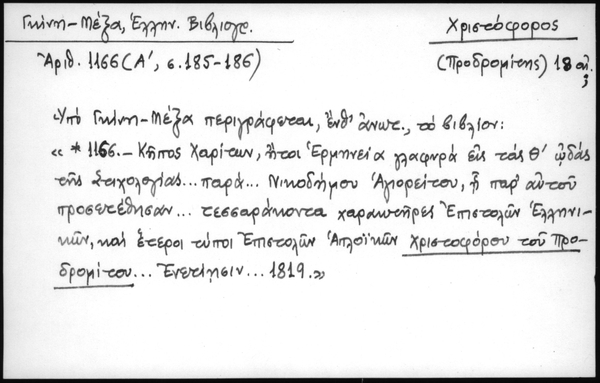 Γκίνη-Μέξα, Ἑλλην. Βιβλιογρ.
Χριστόφορος
Ἀριθ. 1166 (Α', σ. 185-186)
(Προδρομίτης) 18 αἰ.;
Ὑπὸ Γκίνη-Μέξα περιγράφεται, ἔνθ' ἀνωτ., τὸ βιβλίον:
« * 1166.- Κῆπος Χαρίτων, ἤτοι Ἑρμηνεία γλαφυρὰ εἰς τὰς Θ' ᾠδὰς
τῆς Στιχολογίας... παρὰ... Νικοδήμου Ἁγιορείτου, ᾗ παρ' αὐτοῦ
προσετέθησαν... τεσσαράκοντα χαρακτῆρες Ἐπιστολῶν Ἑλληνι-
κῶν, καὶ ἕτεροι τύποι Ἐπιστολῶν Ἁπλοϊκῶν Χριστοφόρου τοῦ Προ-
δρομίτου... Ἐνετίησιν... 1819.»